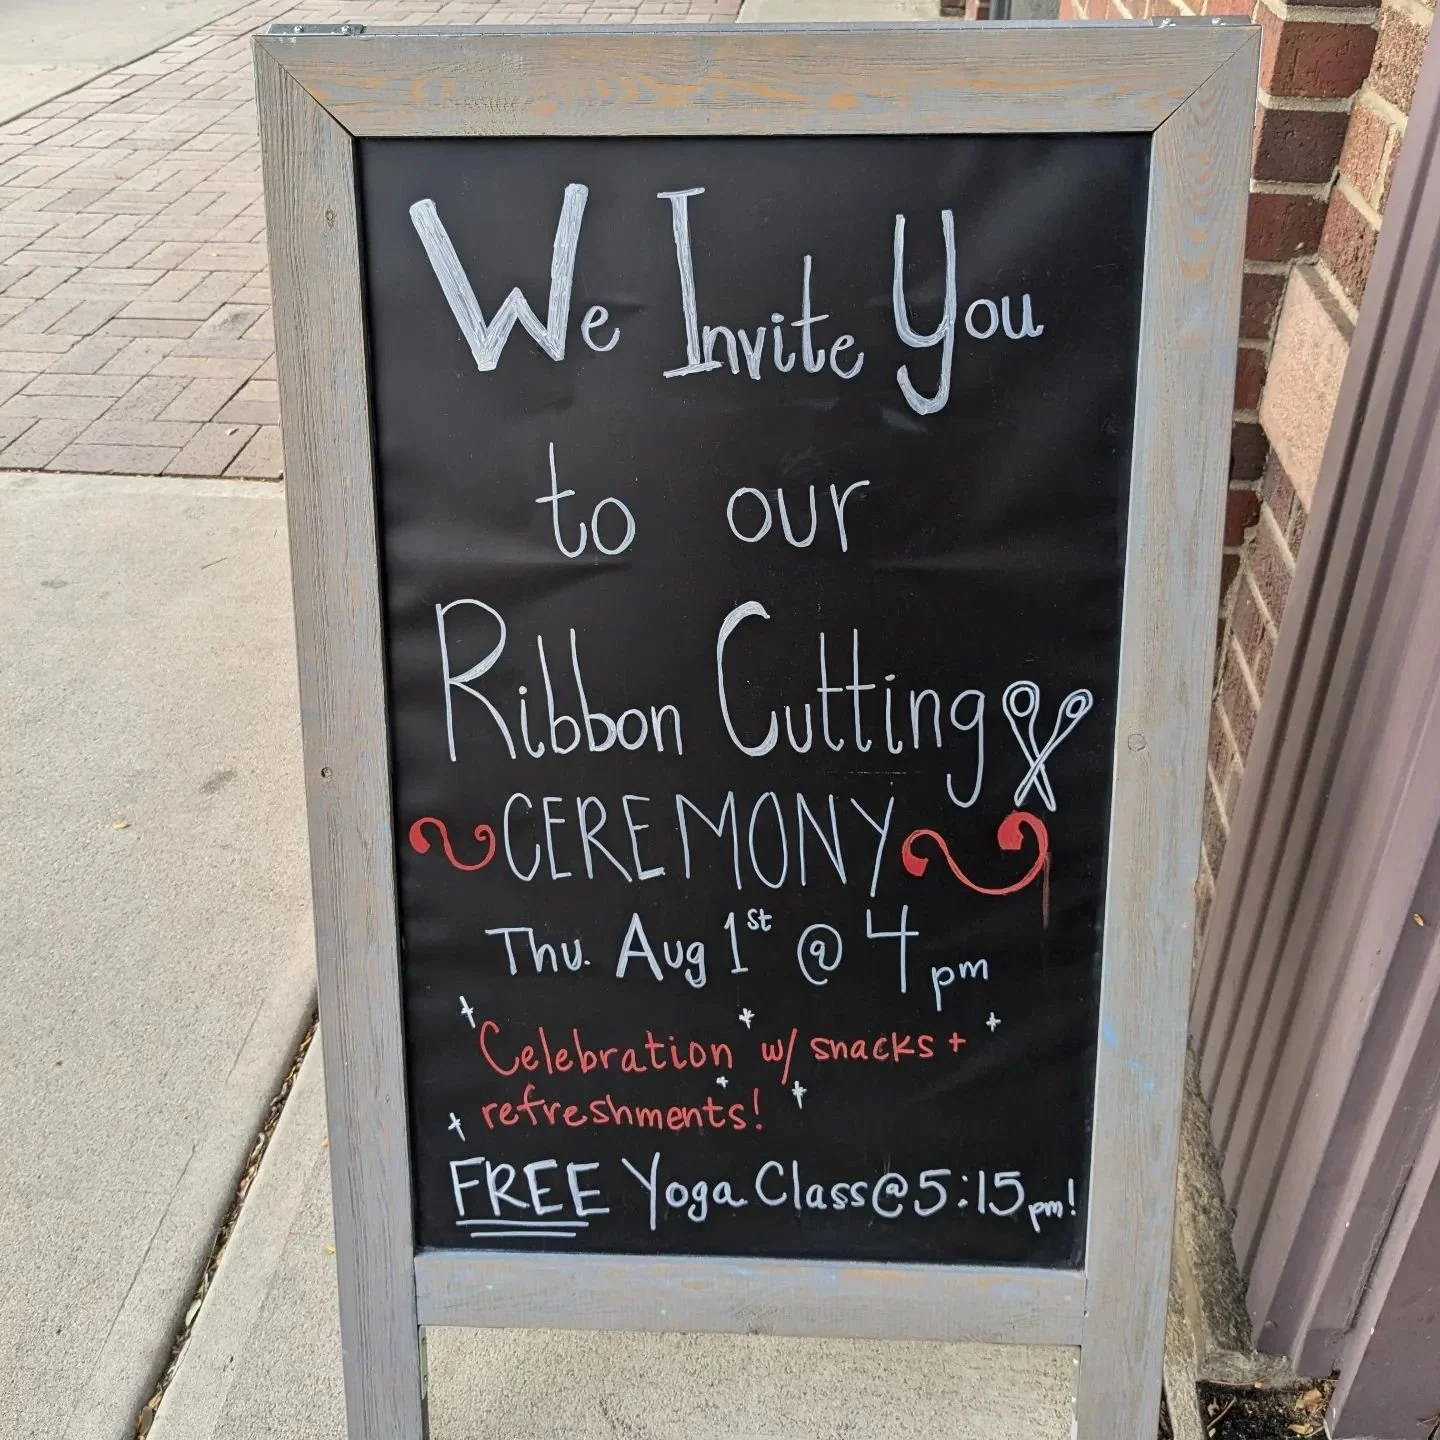 We Invite You
to our
Ribbon Cutting
CEREMONY
Thu. Aug 1st @ 4pm
Celebration w/ snacks +
refreshments!
FREE Yoga Class @ 5:15pm!